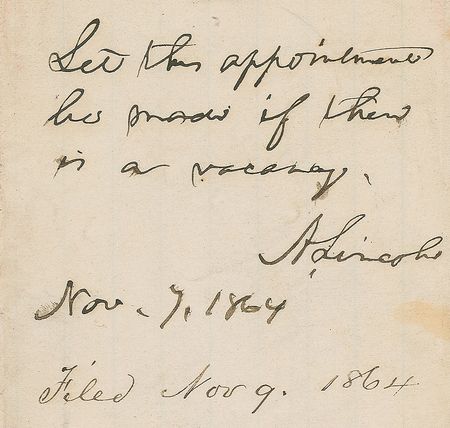 Let this appointment
be made if there
is a vacancy.
A. Lincoln
Nov. 7, 1864
Filed Nov 9. 1864